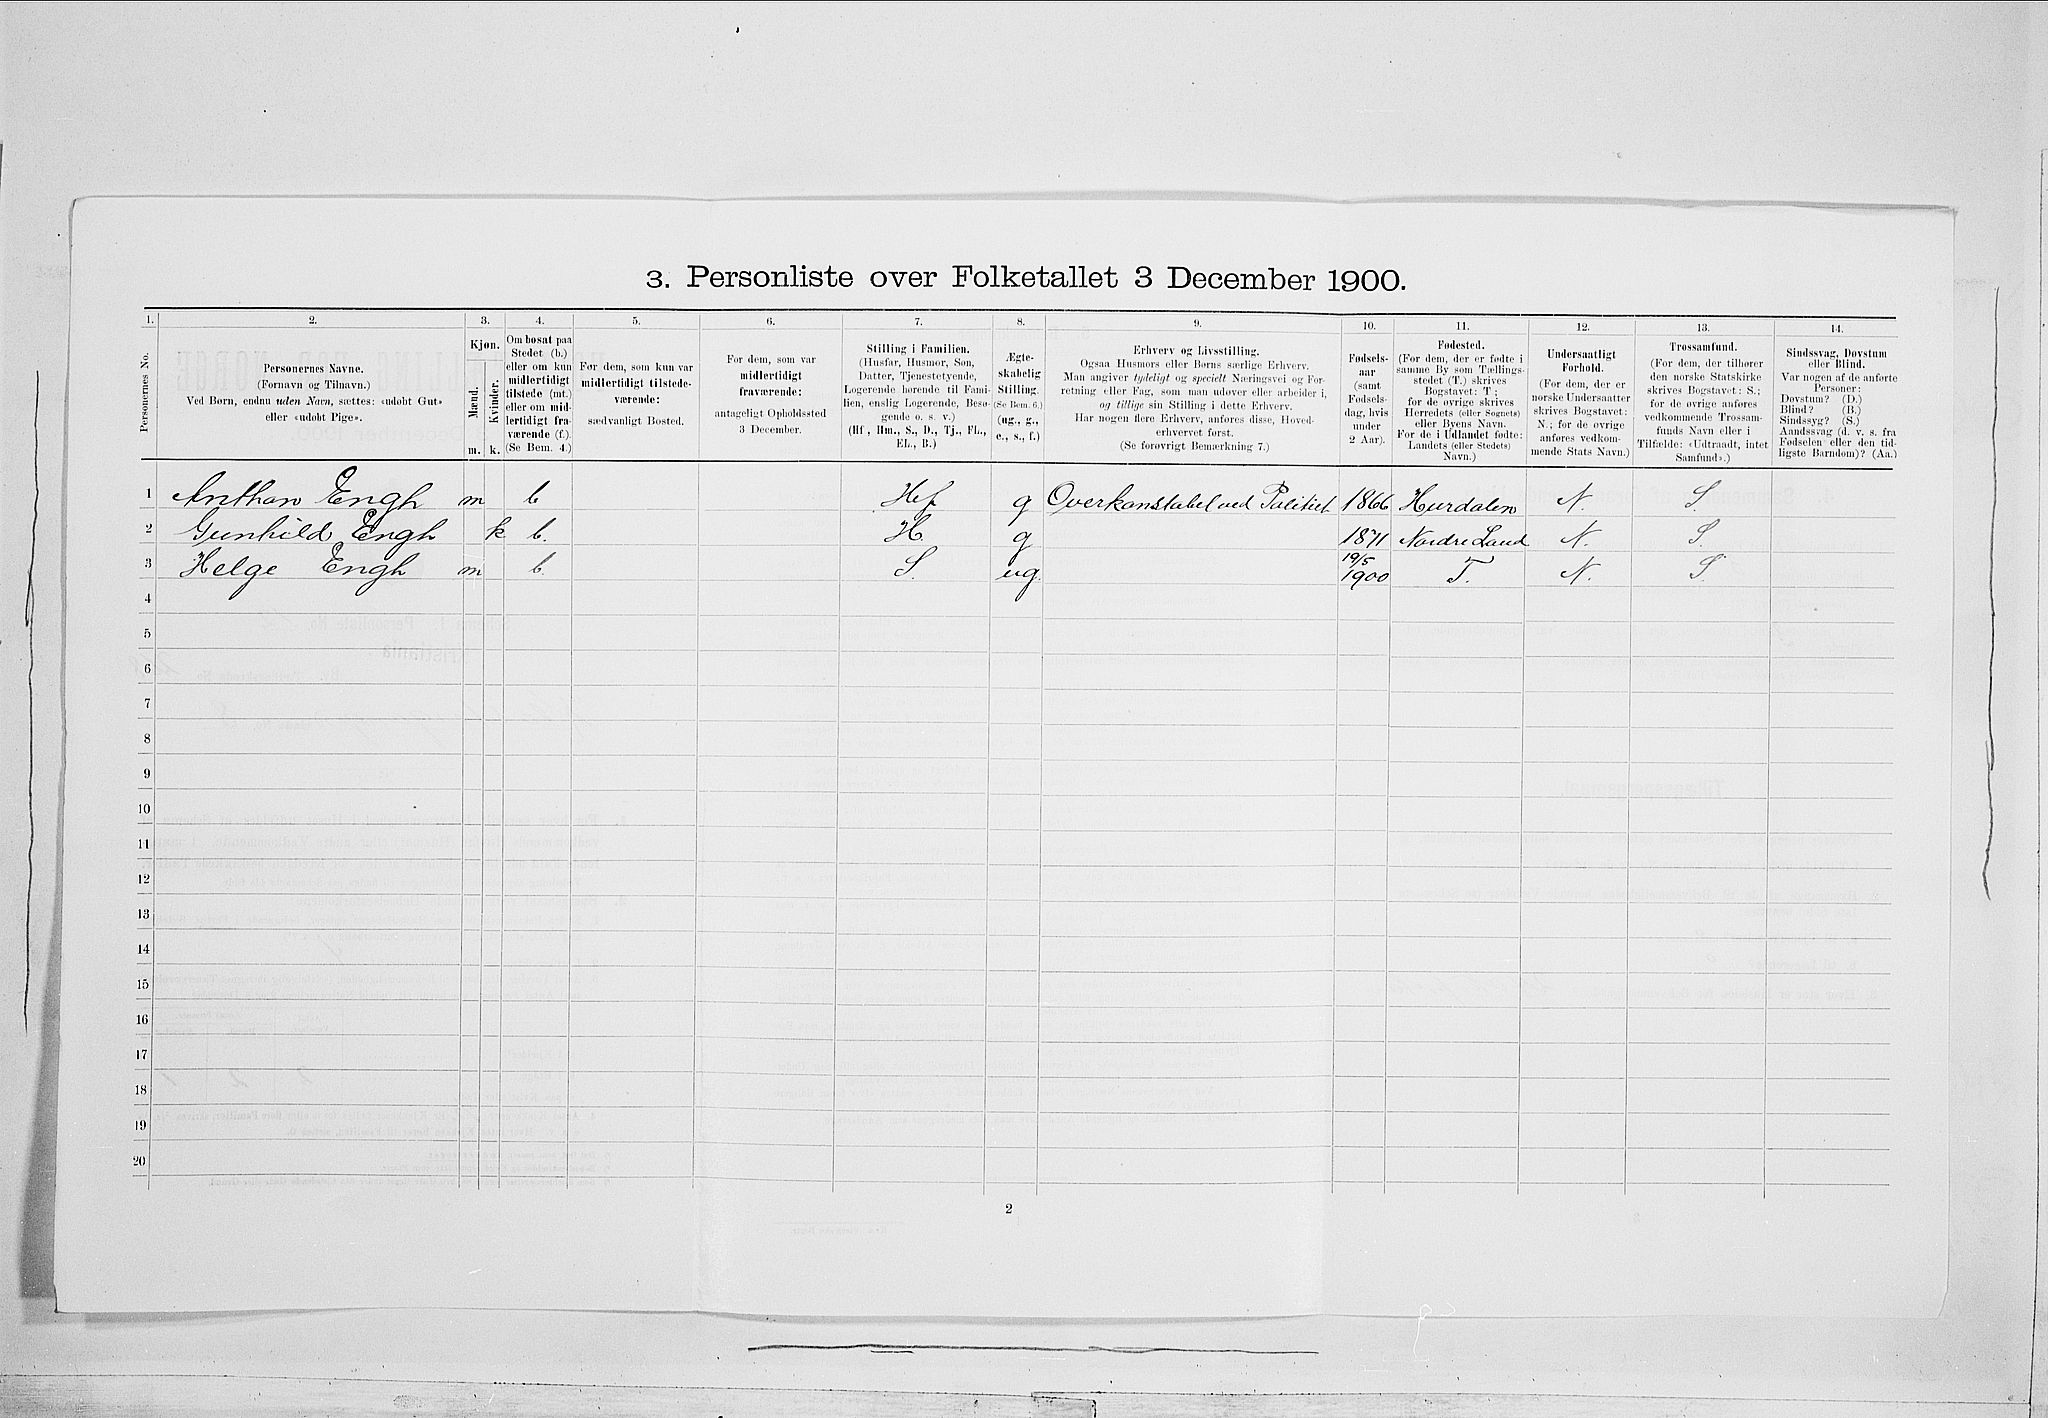 3. Personliste over Folketallet 3 December 1900.
1. 2. 3. 4. 5. 6. 7. 8. 9. 10. 11. 12. 13. 14.
Personernes No.
Personernes Navne.
(Fornavn og Tilnavn.)
Ved Børn, endnu uden Navn, sættes: «udøbt Gut»
eller «udøbt Pige».
Kjøn.
Mænd.
Kvinder.
m. k.
Om bosat paa
Stedet (b.)
eller om kun
midlertidigt
tilstede (mt.)
eller om mid-
lertidigt fra-
værende (f.).
(Se Bem. 4.)
For dem, som kun var
midlertidigt tilstede-
værende:
sædvanligt Bosted.
For dem, som var
midlertidigt
fraværende:
antageligt Opholdssted
3 December.
Stilling i Familien.
(Husfar, Husmor, Søn,
Datter, Tjenestetyende,
Logerende hørende til Fami-
lien, enslig Logerende, Besø-
gende o. s. v.)
(Hf., Hm., S., D., Tj., FL.,
EL., B.)
Ægte-
skabelig
Stilling.
(Se Bem. 6.)
(ug., g.,
e., s., f.)
Erhverv og Livsstilling.
Ogsaa Husmors eller Børns særlige Erhverv.
Man angiver tydeligt og specielt Næringsvei og For-
retning eller Fag, som man udøver eller arbeider i,
og tillige sin Stilling i dette Erhverv.
Har nogen flere Erhverv, anføres disse, Hoved-
erhvervet først.
(Se forøvrigt Bemærkning 7.)
Fødsels-
aar
(samt
Fødsels-
dag, hvis
under
2 Aar).
Fødested.
(For dem, der er fødte i
samme By som Tællings-
stedet (T.) skrives
Bogstavet: T;
for de øvrige skrives
Herredets (eller Sognets)
eller Byens Navn.
For de i Udlandet fødte:
Landets (eller Stedets)
Navn.)
Undersaatligt
Forhold.
(For dem, der er
norske Undersaatter
skrives Bogstavet:
N.; for de øvrige
anføres vedkom-
mende Stats Navn.)
Trossamfund.
(For dem, der tilhører
den norske Statskirke
skrives Bogstavet: S.;
for de øvrige anføres
vedkommende Trossam-
funds Navn eller i
Tilfælde: «Udtraadt, intet
Samfund».)
Sindssvag, Døvstum
eller Blind.
Var nogen af de anførte
Personer:
Døvstum? (D.)
Blind? (B.)
Sindssyg? (S.)
Aandssvag (d. v. s. fra
Fødselen eller den tid-
ligste Barndom)? (Aa.)
1 Anthon Engh m b Hf g Overkonstabel ved Politiet 1866 Hurdalen N. S.
2 Gunhild Engh k b. H. g 1871 Nordre Land N. S.
3 Helge Engh m b. S. ug. 19/5 1900 T. N. S
4
5
6
7
8
9
10
11
12
13
14
15
16
17
18
19
20
2